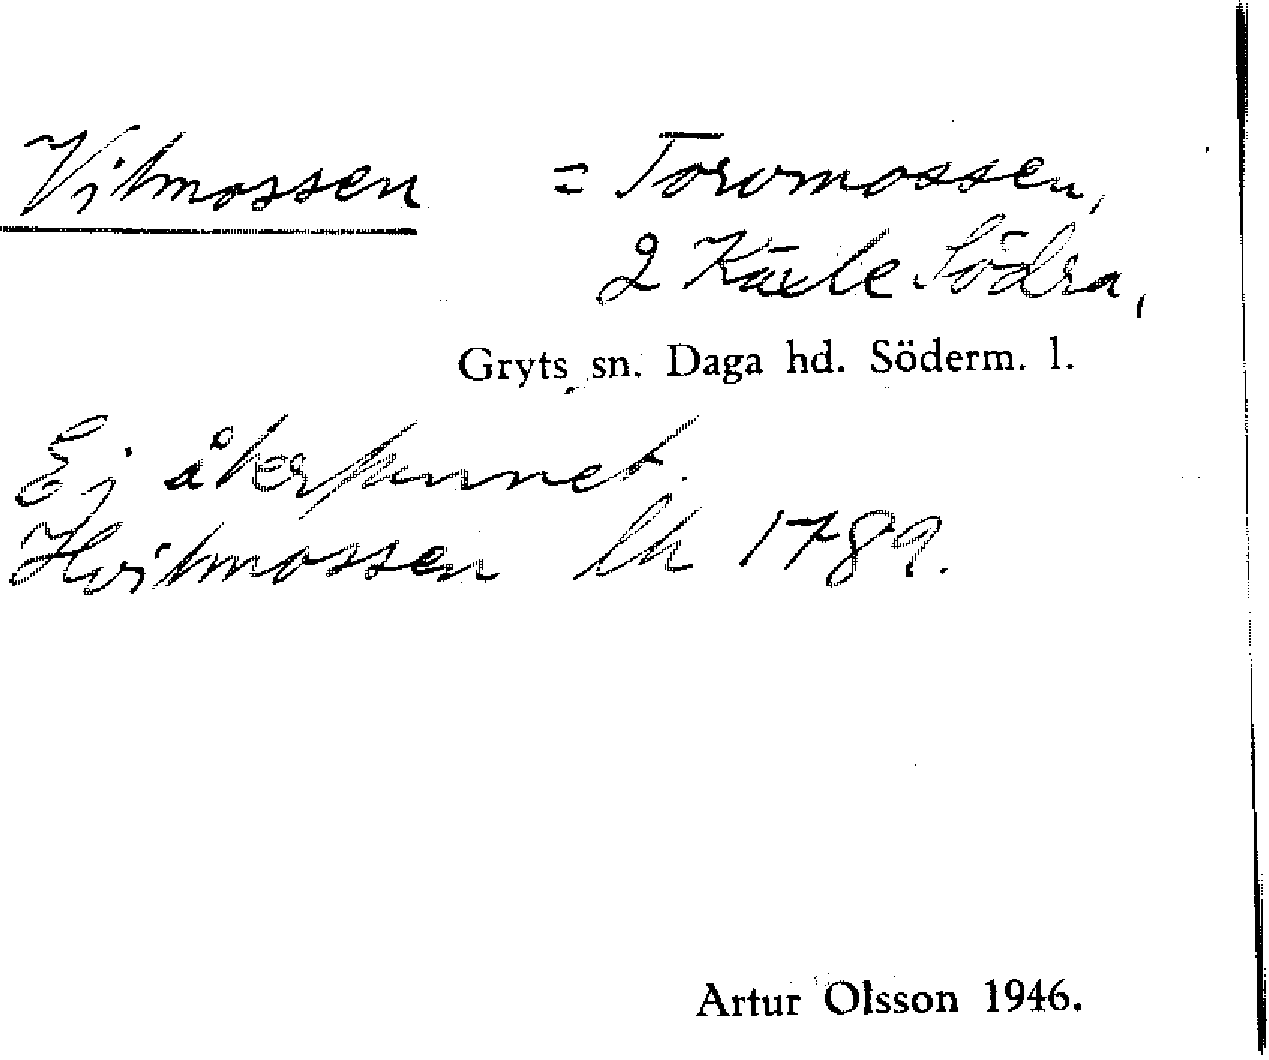 Vitmossen = Torvmossen,
2 Käxle Södra,
Gryts sn. Daga hd. Söderm. l.
Ej återfunnet.
Hvitmossen lh 1789.
Artur Olsson 1946.